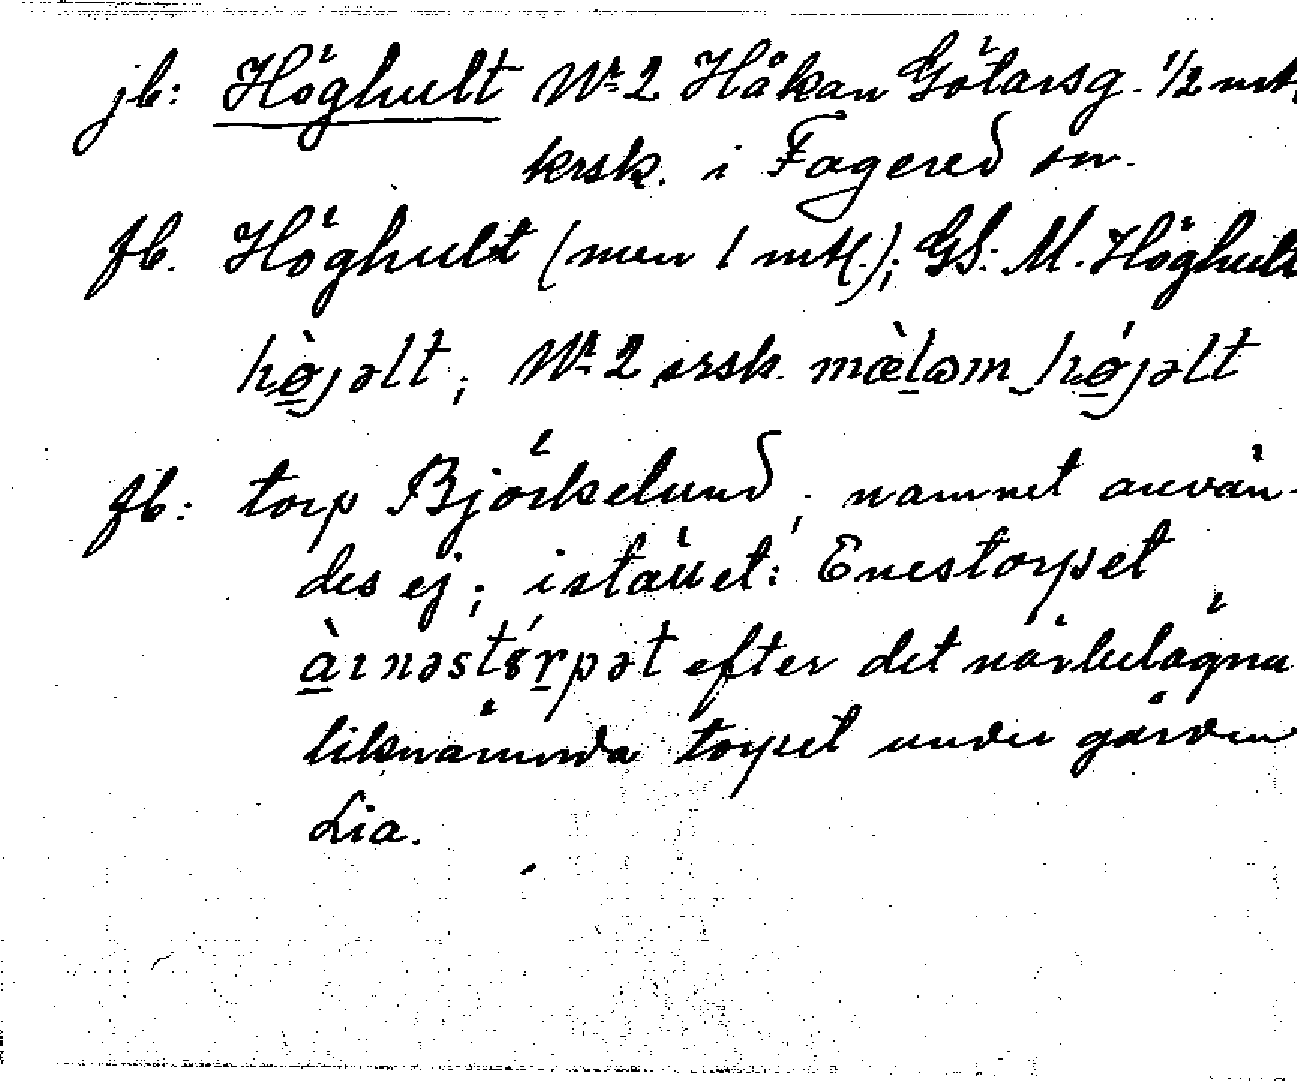 jb: Höghult Nr 2 Håkan Götarsg. 1/2 mtl,
krsk. i Fagered sn.
fb. Höghult (men 1 mtl.); GS: M. Höghult
hø̀jəlt; Nr 2 ersk. mæ̀lom høj́əlt
fb: torp Björkelund, namnet använ-
des ej; istället: Enestorpet
àɪnəstórpət efter det närbelägna
liknämnda torpet under gården
Lia.